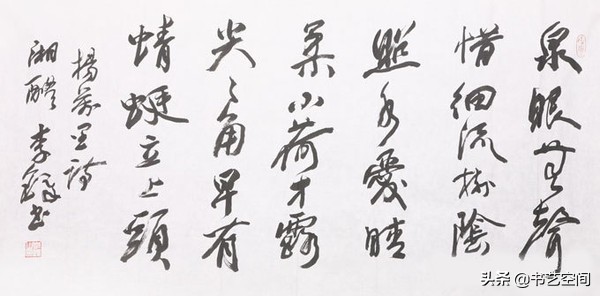 泉眼無聲
惜細流樹陰
照水愛晴
柔小荷才露
尖々角早有
蜻蜓立上頭
楊萬里詩
湘醴李鐸书
头条 @书艺空间